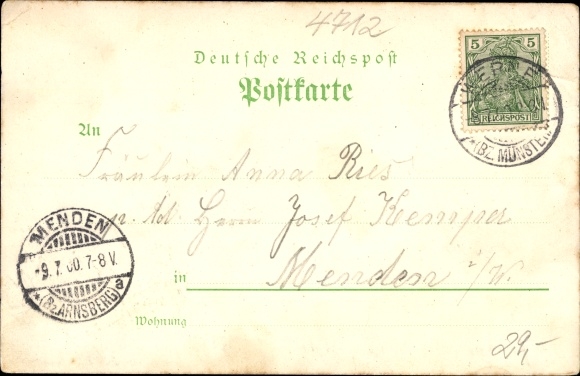 4712
Deutsche Reichspost
Postkarte
5 5
REICHSPOST
WERNE
*(BZ. MÜNSTER)
An
Fräulein Anna Ries
p. Ad. Herrn Josef Kemper
in Menden i/W
MENDEN
-9.7.00.7-8V.
*(BZ.ARNSBERG) a
Wohnung
29,-